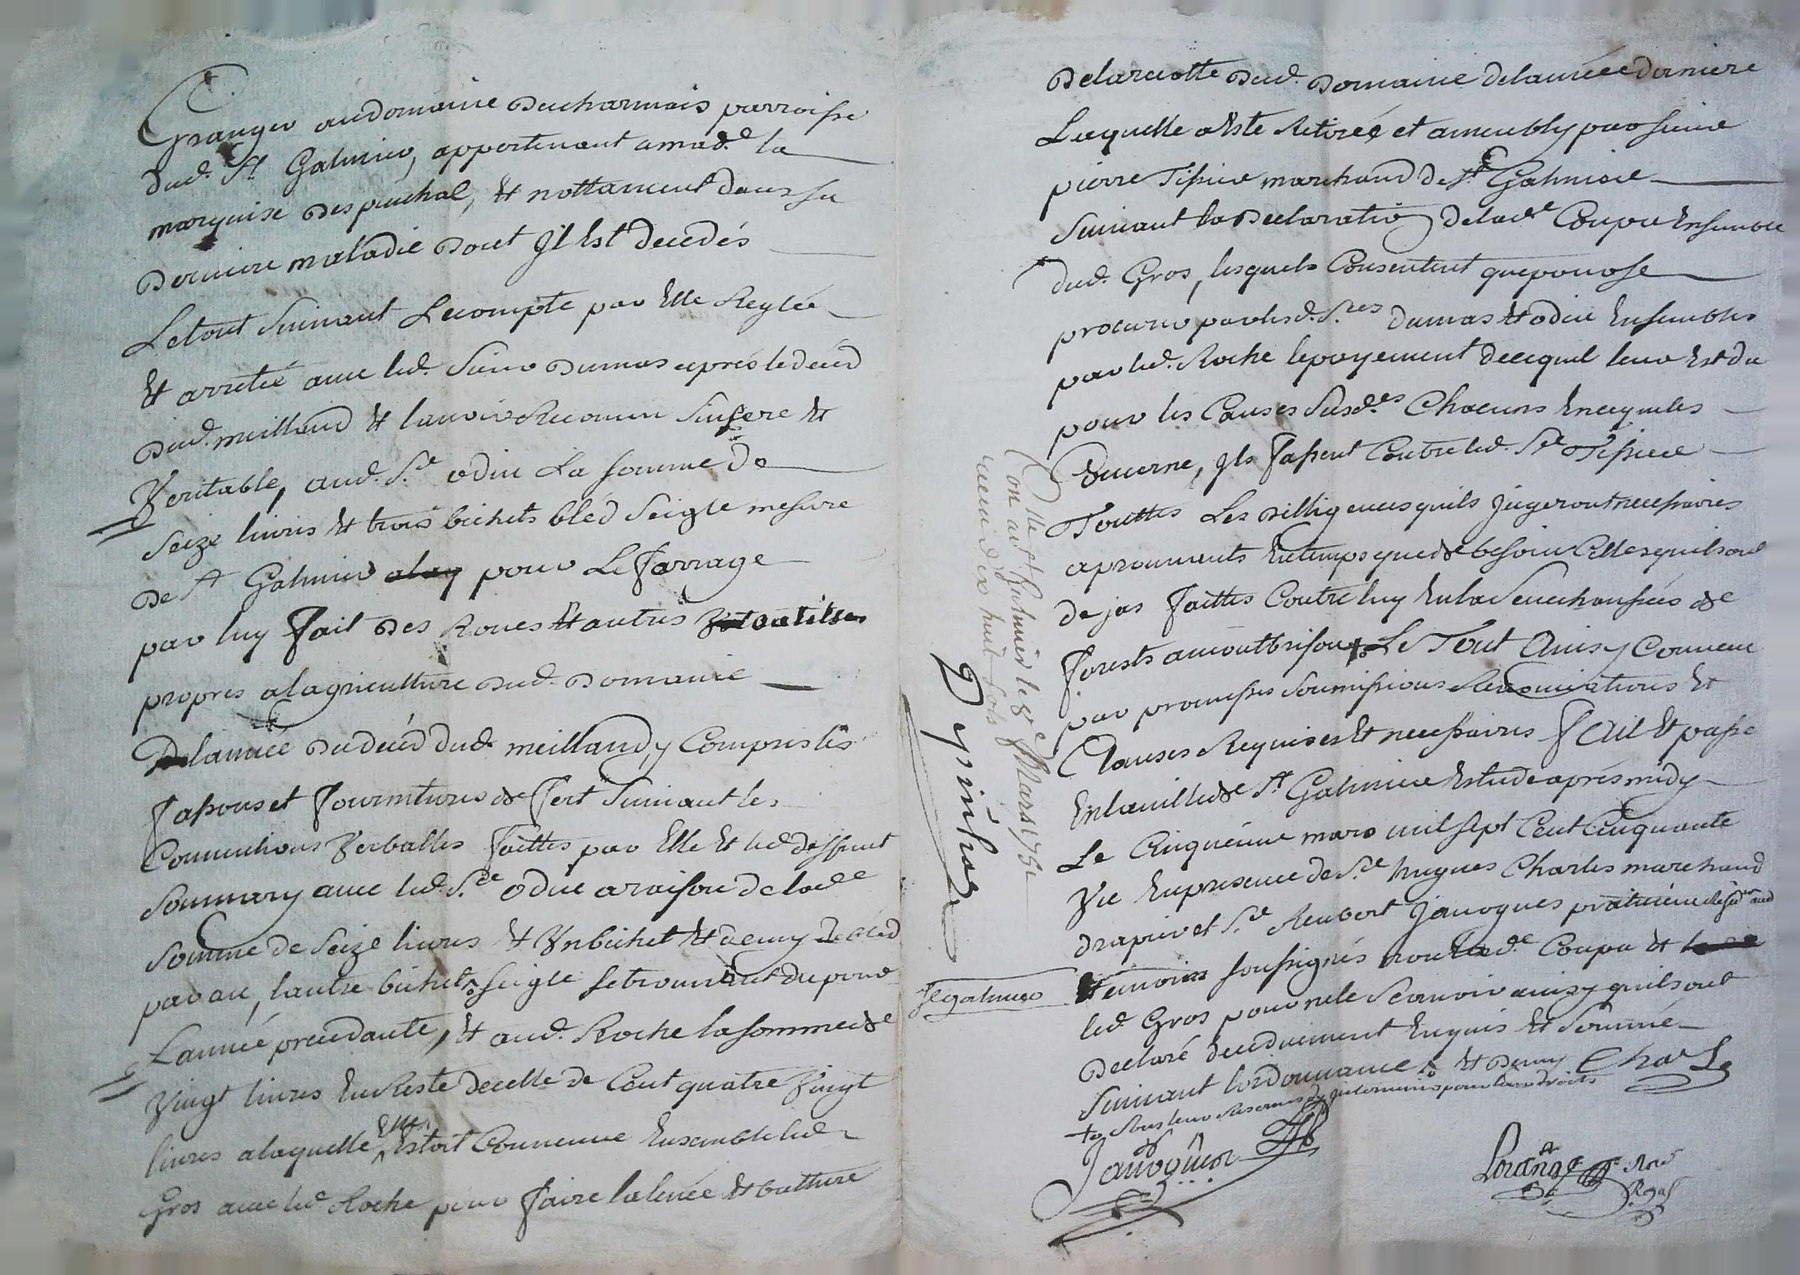 Granger au domaine du charmais parroisse
dud. St. Galmier, appartenant a mad.e la
marquise Despeuchal, et nottament dans sa
Derniere maladie Dont Il Est decedés
Le tout Suivant Lecompte par Elle Reglée
Et arretté avec led. Sieur Dumas après le decéd
Dud. meilland Et lavoir Reconnu Sincere Et
Veritable, aud. Sr. odin La somme De
Seize livres Et trois bichets bléd Seigle mesure
De St Galmier pour Le Farrage
par luy fait Des Roues Et autres outilses
propres alagriculture Dud. Domaine
De lannée Du décéd dud. meilland y Compris les
Fassons et Fournitures de Fert Suivant les
Conventions Verballes faittes par Elle Et led. deffunt
Sonnary avec led. Sr. odin a raison de lad.e
Somme de Seize livres Et Vn bichet Et demy De bléd
par an, lautre bichet Seigle Se trouvant du pour
Lannée precedante, Et aud. Roche la somme de
Vingt livres En Reste de celle de Cent quatre Vingt
livres a laquelle Elle Estoit Convenue Ensemble led.
Gros avec led. Roche pour faire la levée Et batture
De la recolte Dud. Domaine de lannée derniere
Laquelle a Esté Retirée et ameubly par sieur
pierre Tissier marchand de St. Galmier
Suivant la Declaration de lad.e Coupa Ensemble
dud. Gros, lesquels Consentent que pour se
procurer par lesd. Srs. Dumas Et odin Ensembles
par led. Roche le payement de ce quil leur Est du
pour les Causes Susd.es Chacuns En ce qui les
Concerne, Ils fassent Contre led. Sr. Tissier
Touttes Les dilligences quils Jugeront necessaires
aprouvants En temps que de besoin Celles quils ont
de jas faittes Contre luy En la Senechaussées de
forests a montbrison Le Tout Ainsy Convenu
par promesses Soumissions Renonciations Et
Clauses Requises Et necessaires Fait Et passé
En la ville de St Galmier Estude après midy
Le Cinquième mars mil sept Cent Cinquante
Vn En presence de Sr. hugues Charles marchand
drapier et Sr. Reubert Javogues praticien
temoins soussignés non lad.e Coupa Et
led. Gros pour ne le Scavoir ainsy quils ont
Declaré de ce duement Enquis Et Sommé
Suivant lordonnance Et Demy Charle
Javogues
Lorange No.re Royal
Con.lle a St Galmier le 8e Mars 1751
Recu dix huit sols
Depinhac
St galmier